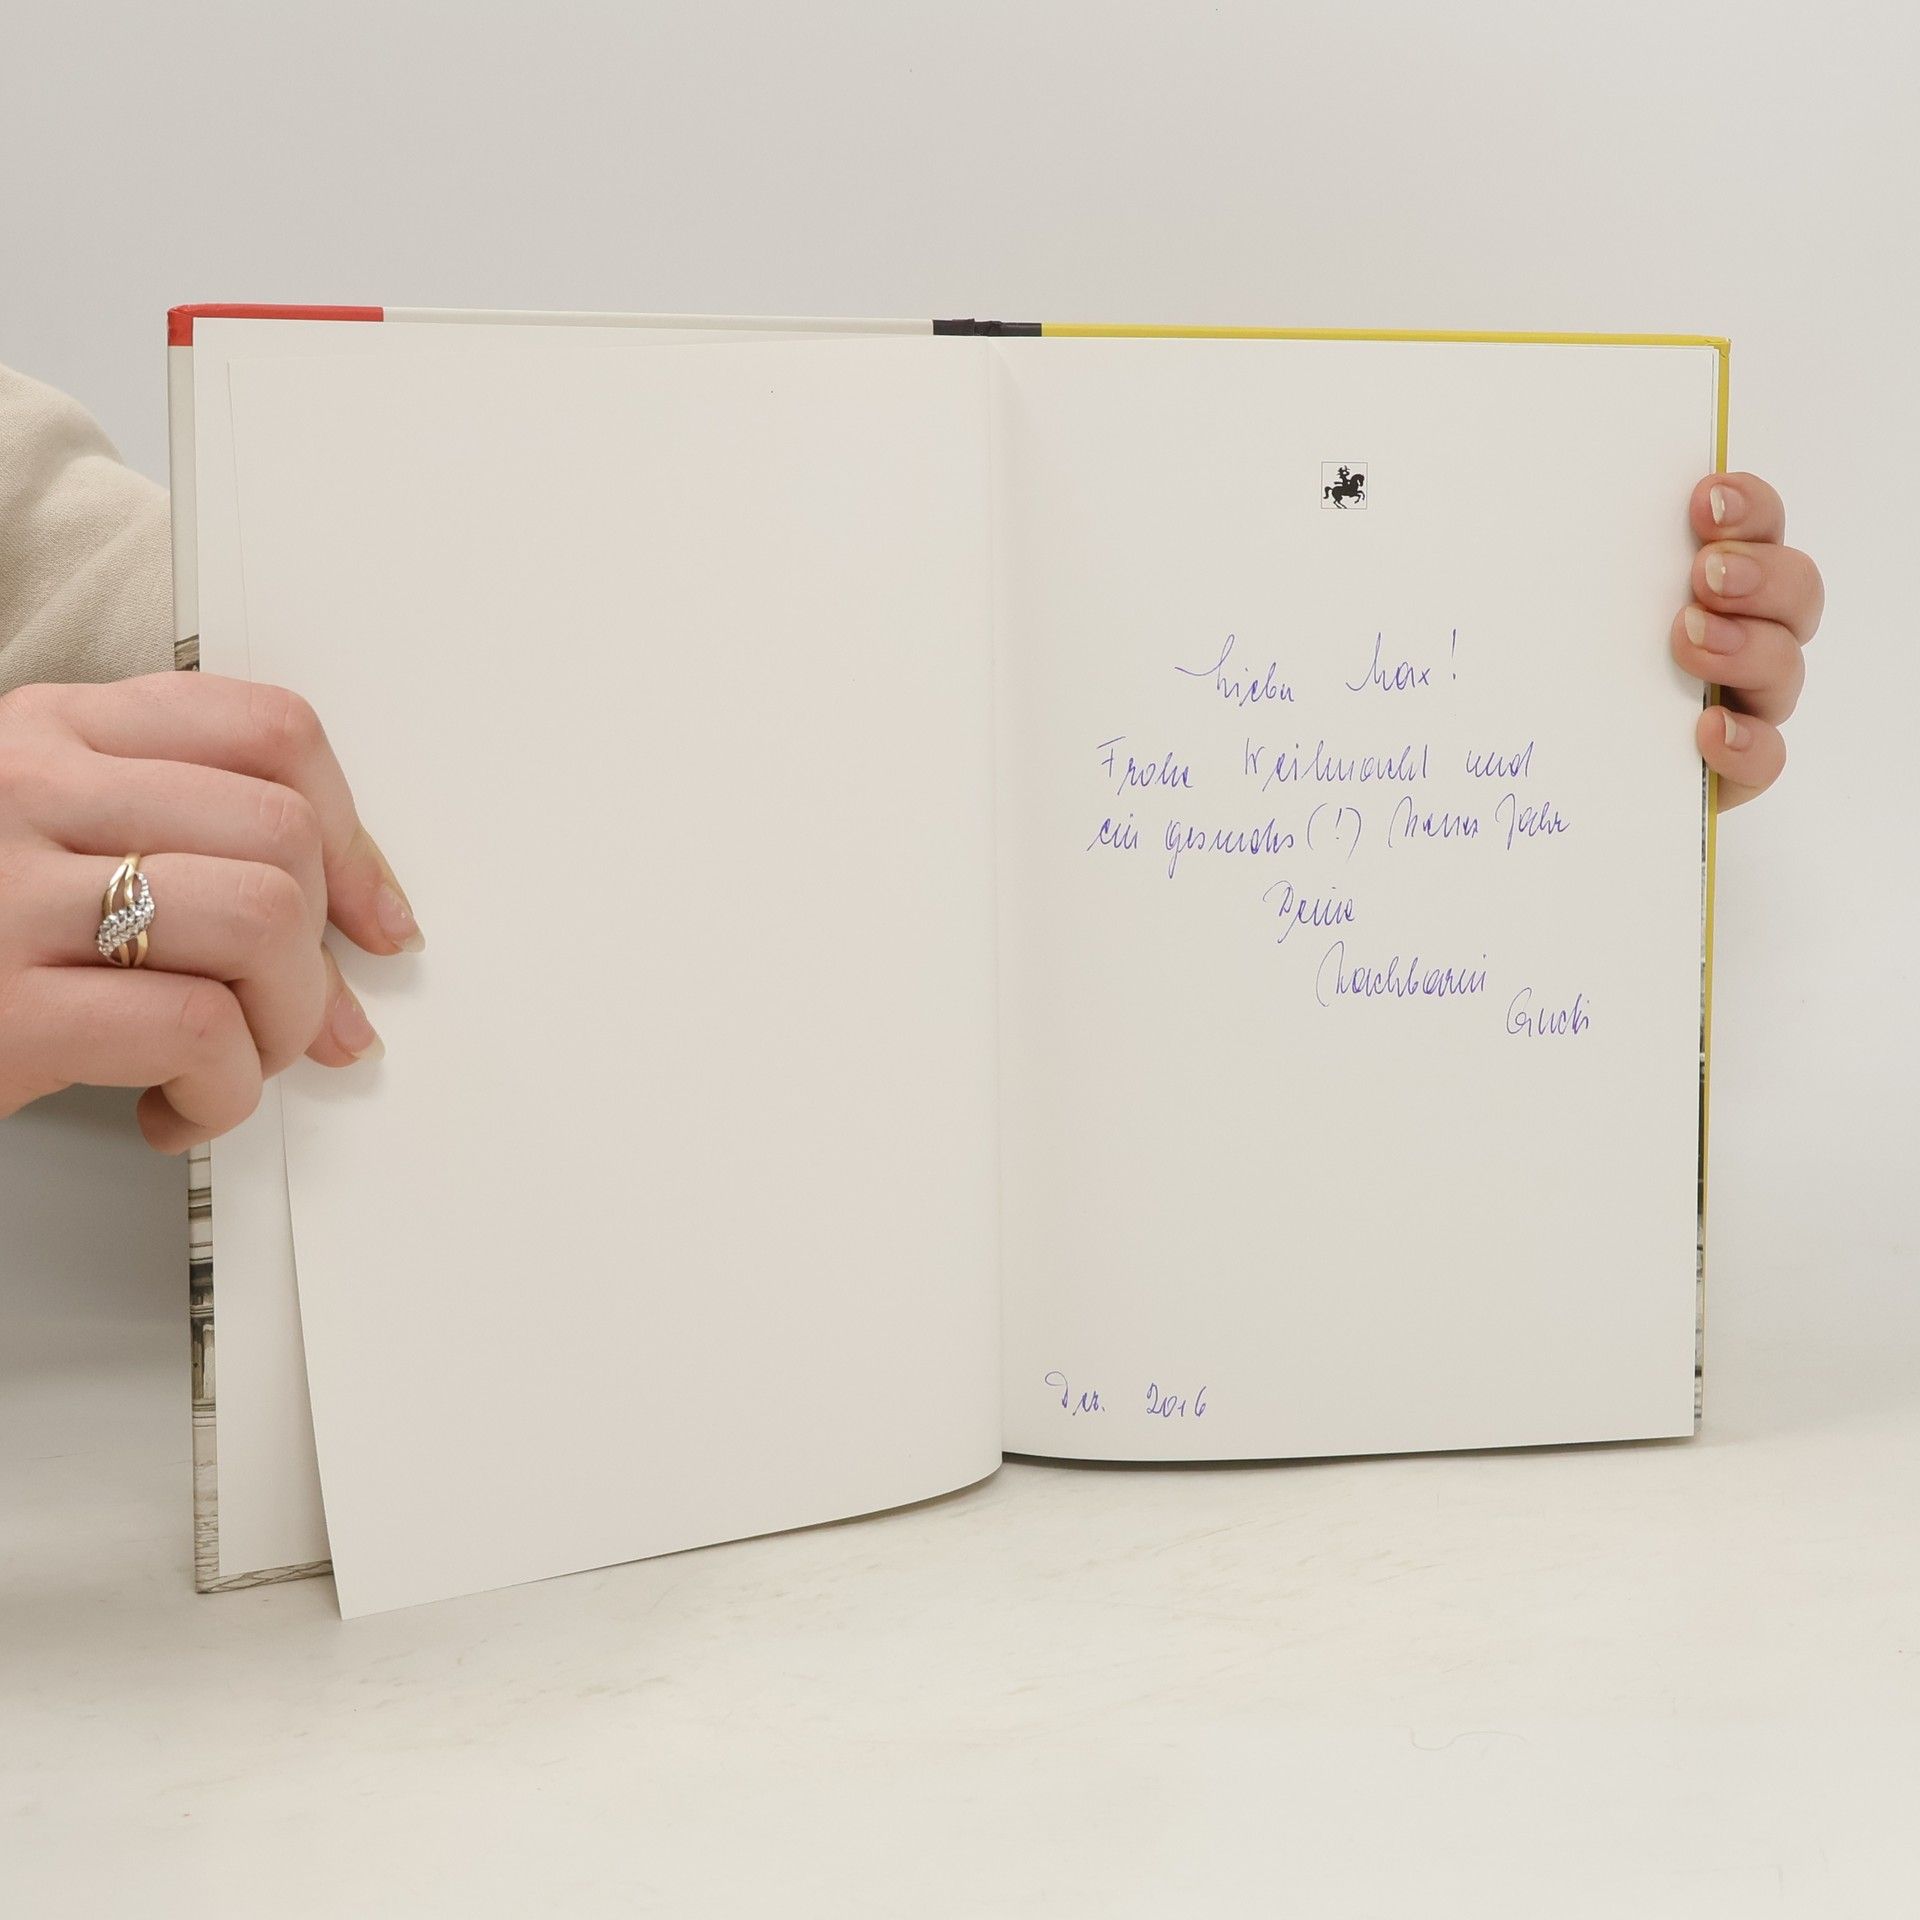 Lieber Max!
Frohe Weihnacht und
ein gesundes (!) Neues Jahr
Deine
Nachbarin
Gucki
Dez. 2016